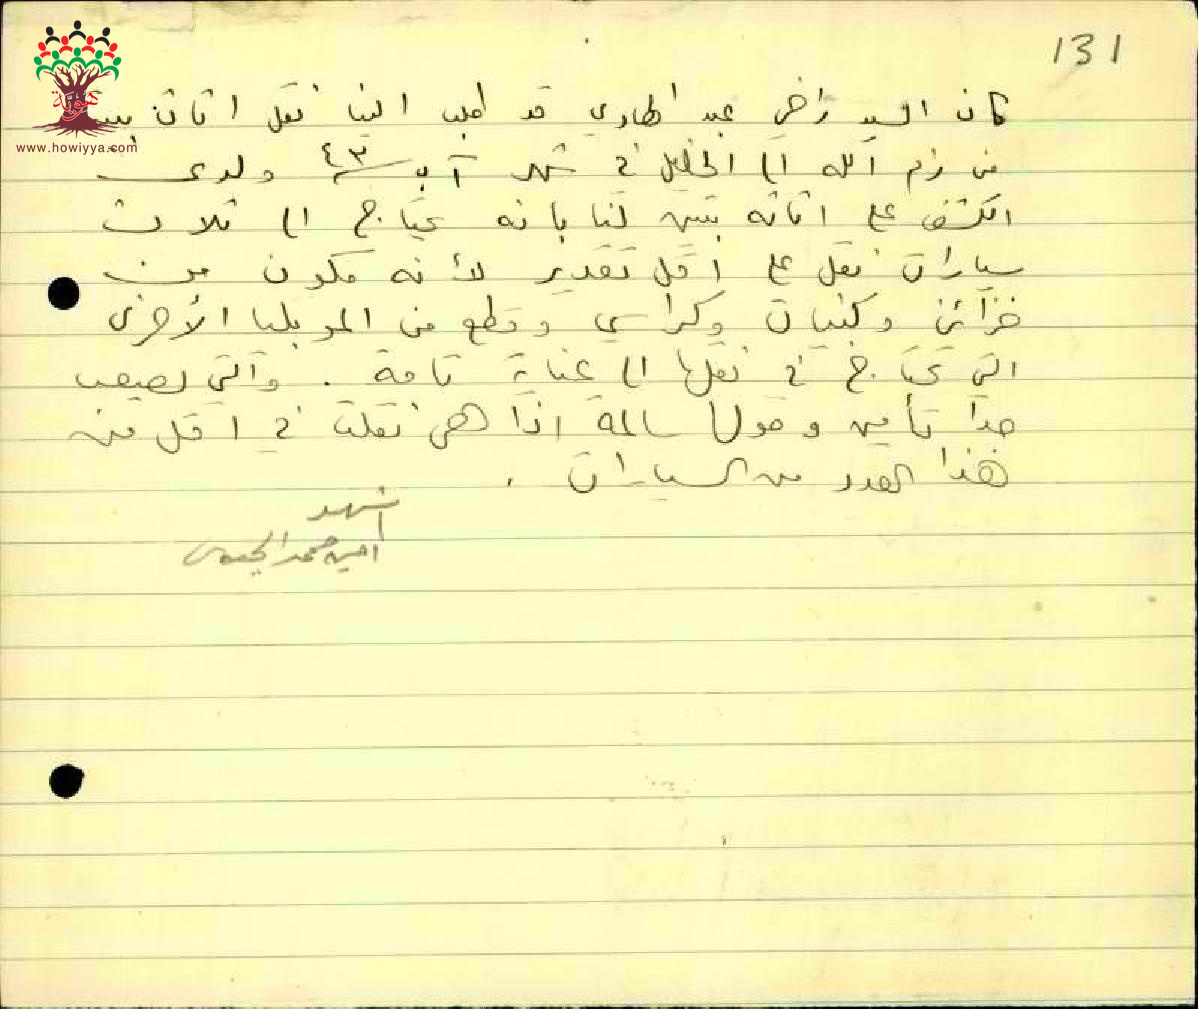 131
كان السيد راضي عبد الهادي قد طلب الينا نقل اثاث بيته
من رام الله الى الخليل في شهر آب سنة ٤٣ ولدى
الكشف على اثاثه تبين لنا بانه يحتاج الى ثلاث
سيارات نقل على اقل تقدير لأنه مكون من
خزائن وكنبيات وكراسي وقطع من الموبليا الأخرى
التي تحتاج في نقلها الى عناية تامة . والتي يصعب
جدا تأمين وصولها سالمة اذا هي نقلت في اقل من
هذا العدد من السيارات .
اشهد
امين محمد
هوية
www.howiyya.com